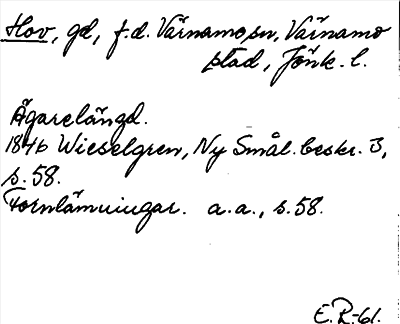 Hov, gd, f.d. Värnamo sn, Värnamo
stad, Jönk. l.
Ägarelängd.
1846 Wieselgren, Ny Smål. beskr. 3,
s. 58.
Fornlämningar. a.a., s. 58.
E.R-61.